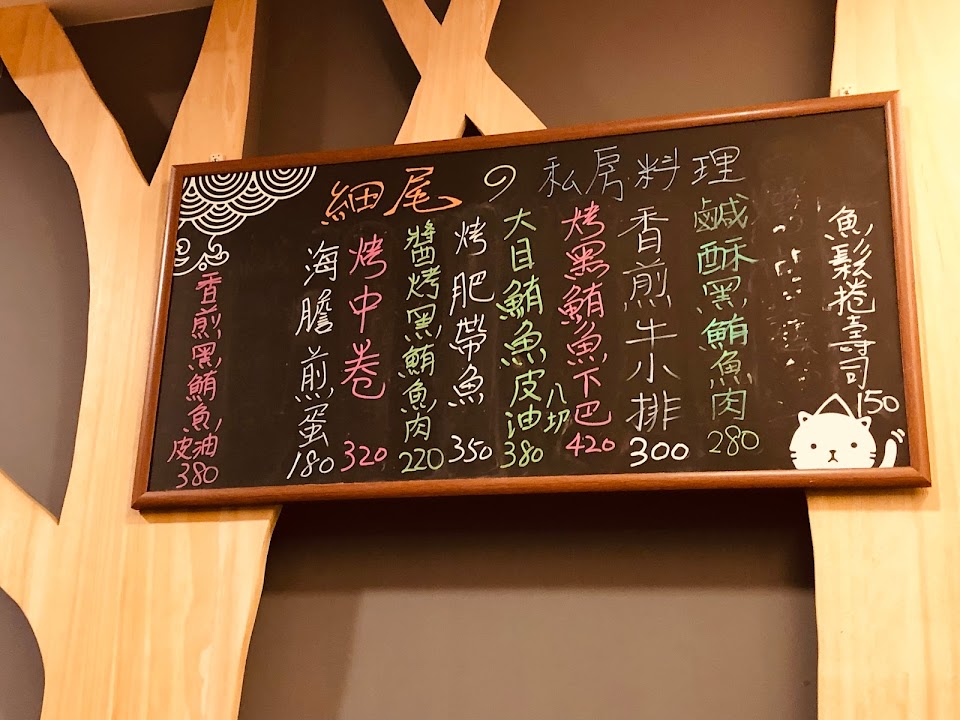 細尾の私房料理
魚鬆捲壽司 150
鹹酥黑鮪魚肉 280
香煎牛小排 300
烤黑鮪魚下巴 420
大目鮪魚皮油 八切 380
烤肥帶魚 350
醬烤黑鮪魚肉 220
烤中卷 320
海膽煎蛋 180
香煎黑鮪魚皮油 380